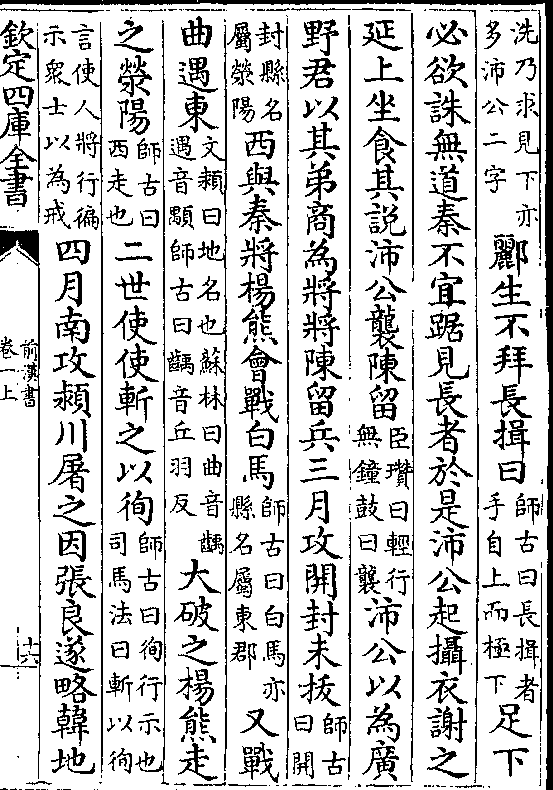 洗乃求見下亦多沛公二字酈生不拜長揖曰師古曰長揖者手自上而極下足下
必欲誅無道秦不宜踞見長者於是沛公起攝衣謝之
延上坐食其說沛公襲陳留臣瓚曰輕行無鐘鼓曰襲沛公以為廣
野君以其弟商為將將陳留兵三月攻開封未拔師古曰開
封縣名屬滎陽西與秦將楊熊會戰白馬師古曰白馬亦縣名屬東郡又戰
曲遇東文穎曰地名也蘇林曰曲音齲遇音顒師古曰齲音丘羽反大破之楊熊走
之滎陽師古曰西走也二世使使斬之以徇師古曰徇行示也司馬法曰斬以徇
言使人將行徧示衆士以為戒四月南攻潁川屠之因張良遂略韓地
欽定四庫全書
前漢書
卷一上
十六